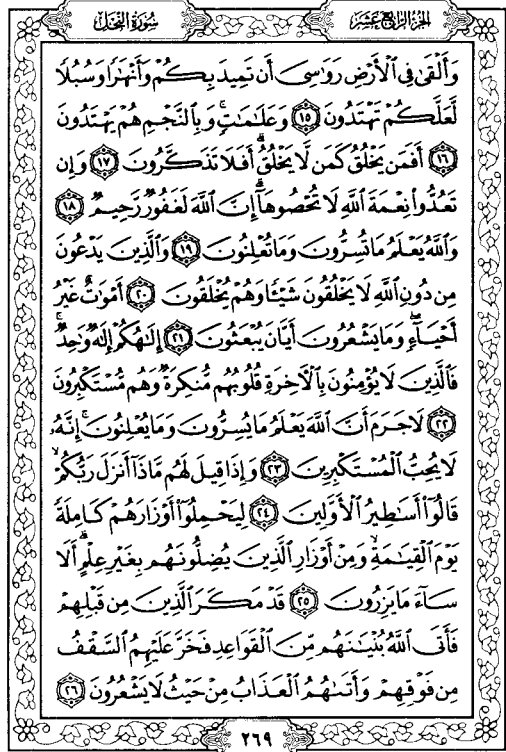 سُورَةُ النَّحْلِ
الجُزْءُ الرَّابِعَ عَشَرَ
وَأَلْقَىٰ فِي ٱلْأَرْضِ رَوَٰسِيَ أَن تَمِيدَ بِكُمْ وَأَنْهَٰرًا وَسُبُلًا
لَّعَلَّكُمْ تَهْتَدُونَ ١٥ وَعَلَٰمَٰتٍۚ وَبِٱلنَّجْمِ هُمْ يَهْتَدُونَ
١٦ أَفَمَن يَخْلُقُ كَمَن لَّا يَخْلُقُۗ أَفَلَا تَذَكَّرُونَ ١٧ وَإِن
تَعُدُّوا۟ نِعْمَةَ ٱللَّهِ لَا تُحْصُوهَآۗ إِنَّ ٱللَّهَ لَغَفُورٌ رَّحِيمٌ ١٨
وَٱللَّهُ يَعْلَمُ مَا تُسِرُّونَ وَمَا تُعْلِنُونَ ١٩ وَٱلَّذِينَ يَدْعُونَ
مِن دُونِ ٱللَّهِ لَا يَخْلُقُونَ شَيْـًٔا وَهُمْ يُخْلَقُونَ ٢٠ أَمْوَٰتٌ غَيْرُ
أَحْيَآءٍۖ وَمَا يَشْعُرُونَ أَيَّانَ يُبْعَثُونَ ٢١ إِلَٰهُكُمْ إِلَٰهٌ وَٰحِدٌۚ
فَٱلَّذِينَ لَا يُؤْمِنُونَ بِٱلْءَاخِرَةِ قُلُوبُهُم مُّنكِرَةٌ وَهُم مُّسْتَكْبِرُونَ
٢٢ لَا جَرَمَ أَنَّ ٱللَّهَ يَعْلَمُ مَا يُسِرُّونَ وَمَا يُعْلِنُونَۚ إِنَّهُۥ
لَا يُحِبُّ ٱلْمُسْتَكْبِرِينَ ٢٣ وَإِذَا قِيلَ لَهُم مَّاذَآ أَنزَلَ رَبُّكُمْۙ
قَالُوٓا۟ أَسَٰطِيرُ ٱلْأَوَّلِينَ ٢٤ لِيَحْمِلُوٓا۟ أَوْزَارَهُمْ كَامِلَةً
يَوْمَ ٱلْقِيَٰمَةِۙ وَمِنْ أَوْزَارِ ٱلَّذِينَ يُضِلُّونَهُم بِغَيْرِ عِلْمٍۗ أَلَا
سَآءَ مَا يَزِرُونَ ٢٥ قَدْ مَكَرَ ٱلَّذِينَ مِن قَبْلِهِمْ
فَأَتَى ٱللَّهُ بُنْيَٰنَهُم مِّنَ ٱلْقَوَاعِدِ فَخَرَّ عَلَيْهِمُ ٱلسَّقْفُ
مِن فَوْقِهِمْ وَأَتَىٰهُمُ ٱلْعَذَابُ مِنْ حَيْثُ لَا يَشْعُرُونَ ٢٦
٢٦٩